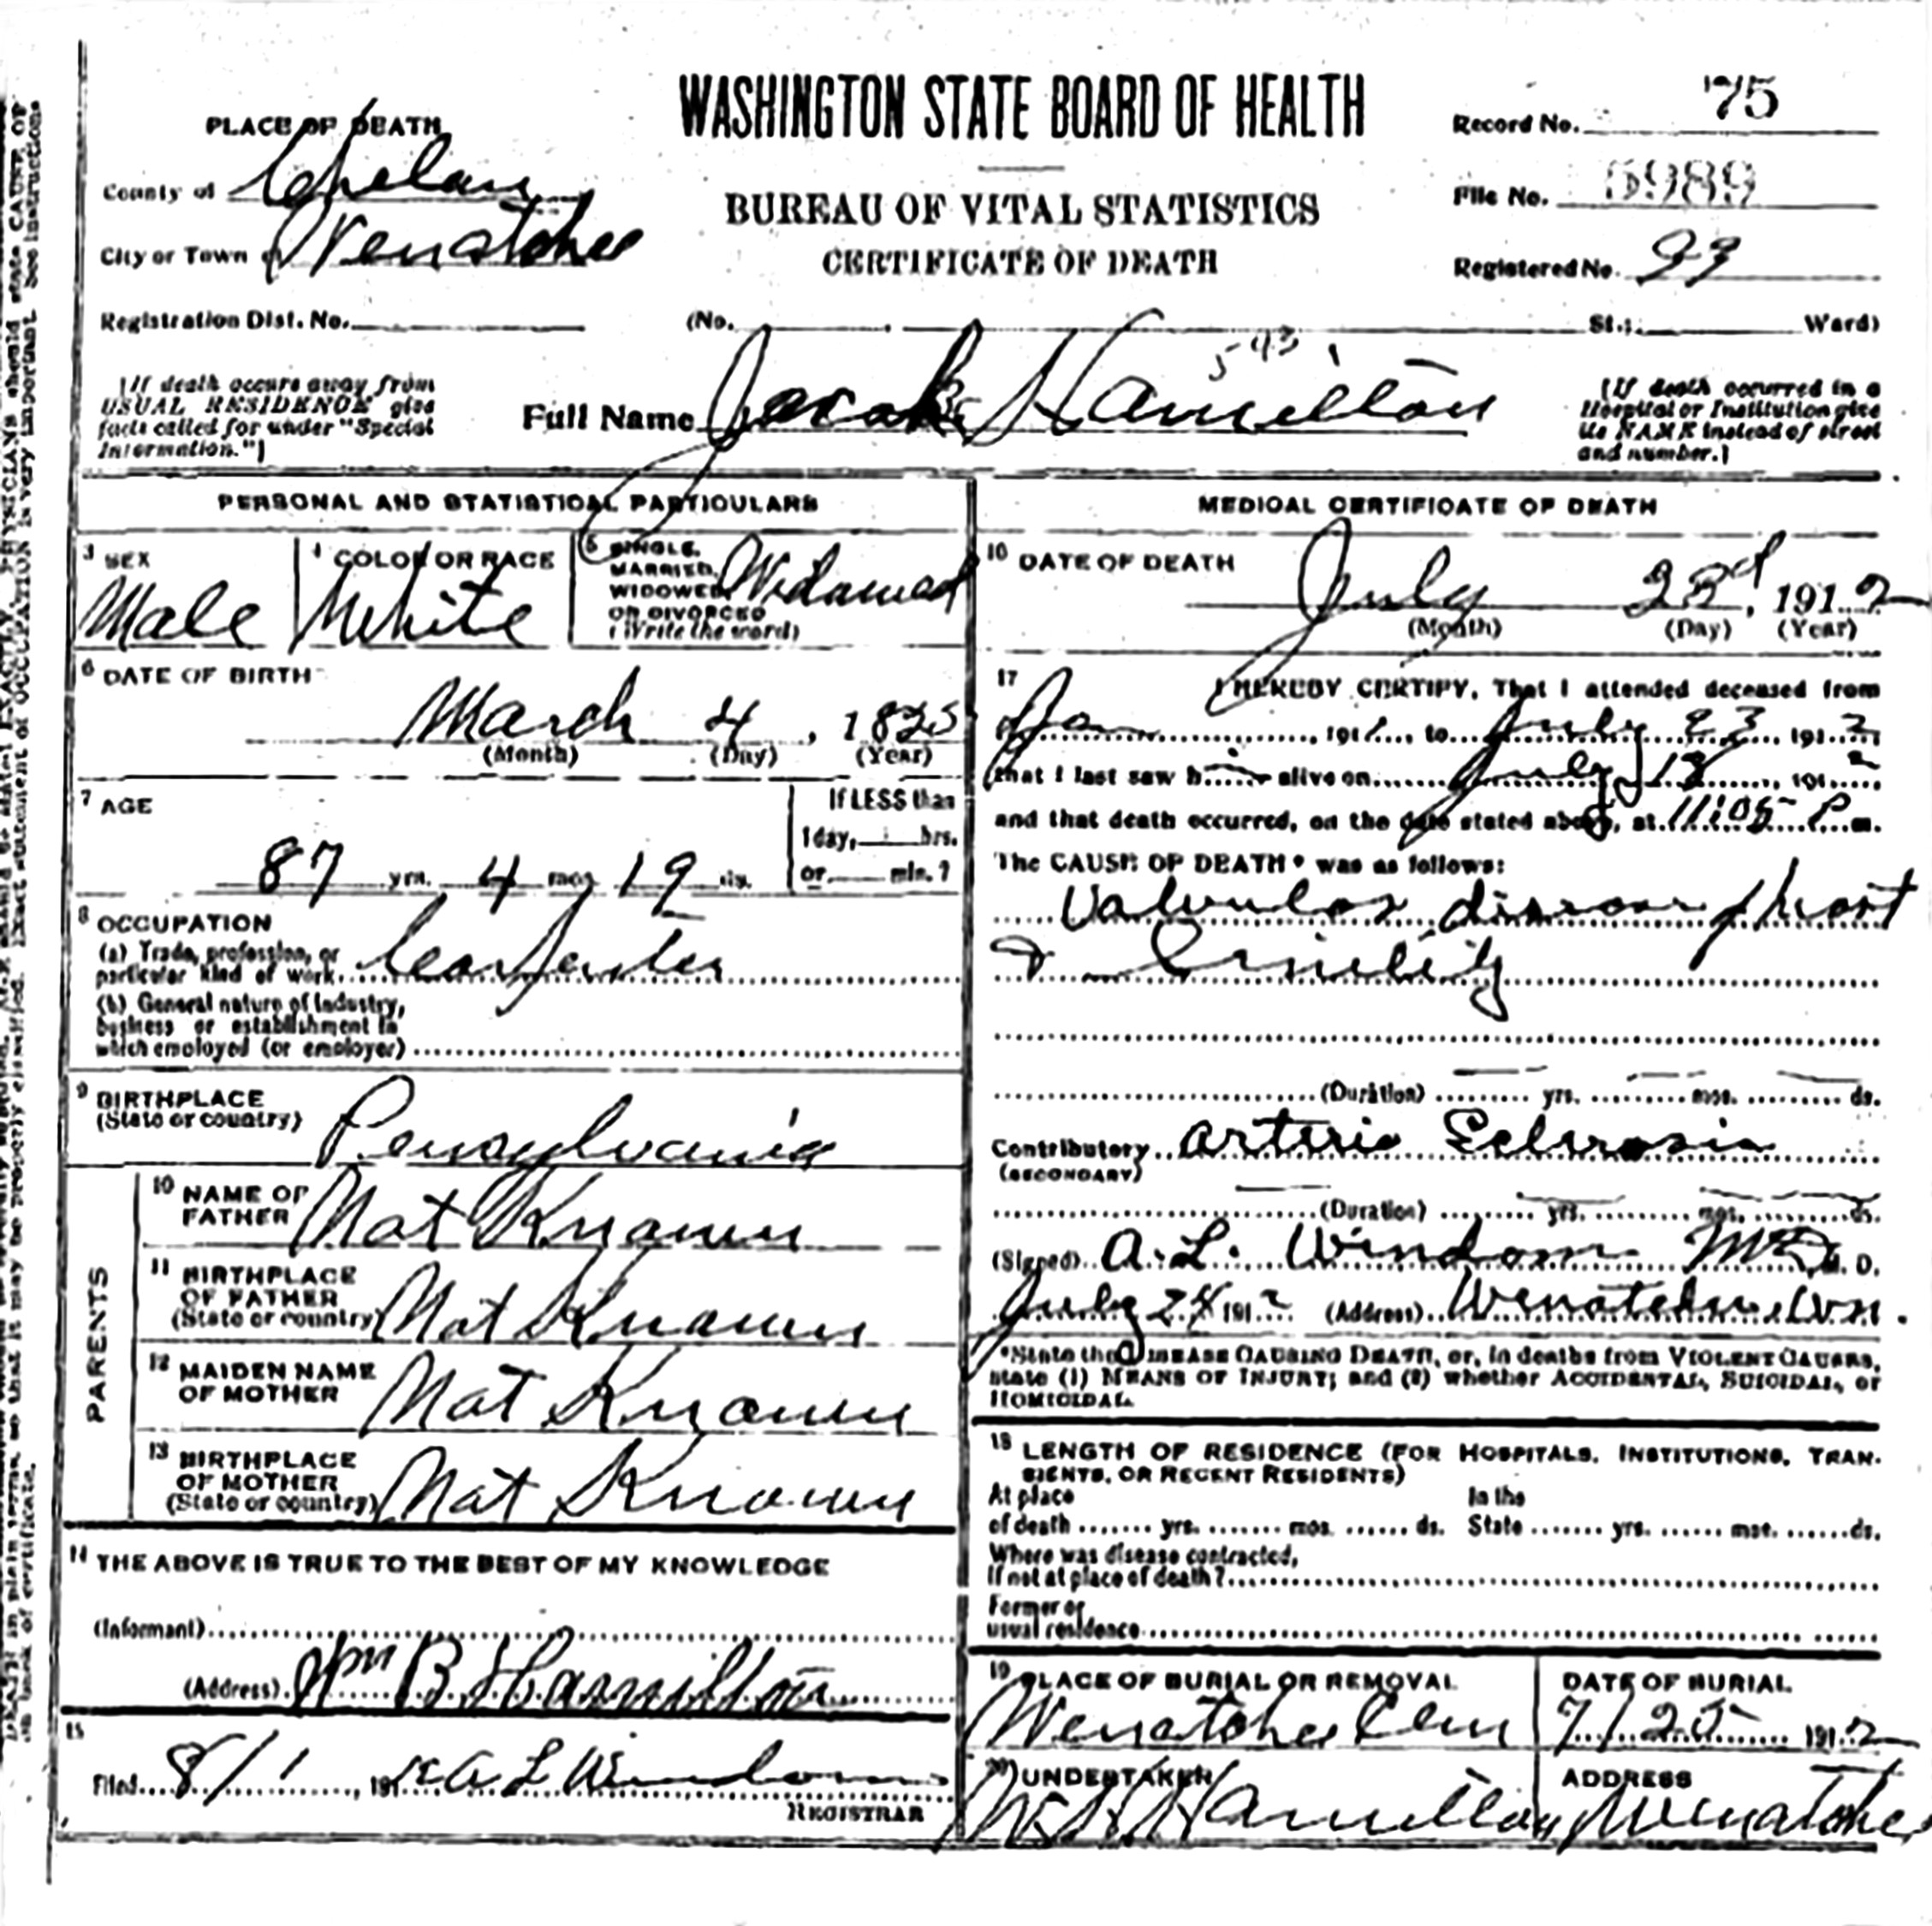 WASHINGTON STATE BOARD OF HEALTH
BUREAU OF VITAL STATISTICS
CERTIFICATE OF DEATH
PLACE OF DEATH
County of Chelan
City or Town of Wenatchee
Registration Dist. No.
(No. St.; Ward)
Record No. 75
File No. 5989
Registered No. 99
(If death occurs away from
USUAL RESIDENCE give
facts called for under "Special
Information.")
593
Full Name Jacob Hamilton
(If death occurred in a
Hospital or Institution give
its NAME instead of street
and number.)
PERSONAL AND STATISTICAL PARTICULARS
3 SEX
Male
4 COLOR OR RACE
White
5 SINGLE,
MARRIED,
WIDOWED,
OR DIVORCED
(Write the word)
Widowed
6 DATE OF BIRTH
March 4, 1825
(Month) (Day) (Year)
7 AGE
87 yrs. 4 mos. 19 ds.
If LESS than
1 day, hrs.
or min.?
8 OCCUPATION
(a) Trade, profession, or
particular kind of work Carpenter
(b) General nature of industry,
business or establishment in
which employed (or employer)
9 BIRTHPLACE
(State or country)
Pensylvania
PARENTS
10 NAME OF
FATHER
Not Known
11 BIRTHPLACE
OF FATHER
(State or country)
Not Known
12 MAIDEN NAME
OF MOTHER
Not Known
13 BIRTHPLACE
OF MOTHER
(State or country)
Not Known
14 THE ABOVE IS TRUE TO THE BEST OF MY KNOWLEDGE
(Informant)
(Address) Wm B. Hamilton
15
Filed 8/1, 191 A L Windom
REGISTRAR
MEDICAL CERTIFICATE OF DEATH
16 DATE OF DEATH
July 23d, 1912
(Month) (Day) (Year)
17 I HEREBY CERTIFY, That I attended deceased from
Jan, 1911, to July 23, 1912,
that I last saw him alive on July 18, 1912,
and that death occurred, on the date stated above, at 11:05 P m.
The CAUSE OF DEATH* was as follows:
Valvular disease of heart
& Senility
(Duration) yrs. mos. ds.
Contributory Arterio Sclerosis
(SECONDARY)
(Duration) yrs. mos. ds.
(Signed) A. L. Windom MD M. D.
July 24 1912 (Address) Wenatchee, Wn.
*State the DISEASE CAUSING DEATH, or, in deaths from VIOLENT CAUSES,
state (1) MEANS OF INJURY; and (2) whether ACCIDENTAL, SUICIDAL, or
HOMICIDAL.
18 LENGTH OF RESIDENCE (FOR HOSPITALS, INSTITUTIONS, TRAN-
SIENTS, OR RECENT RESIDENTS)
At place In the
of death yrs. mos. ds. State yrs. mos. ds.
Where was disease contracted,
If not at place of death?
Former or
usual residence
19 PLACE OF BURIAL OR REMOVAL
Wenatchee Cem
DATE OF BURIAL
7/25 1912
20 UNDERTAKER
Hamilton
ADDRESS
Wenatchee